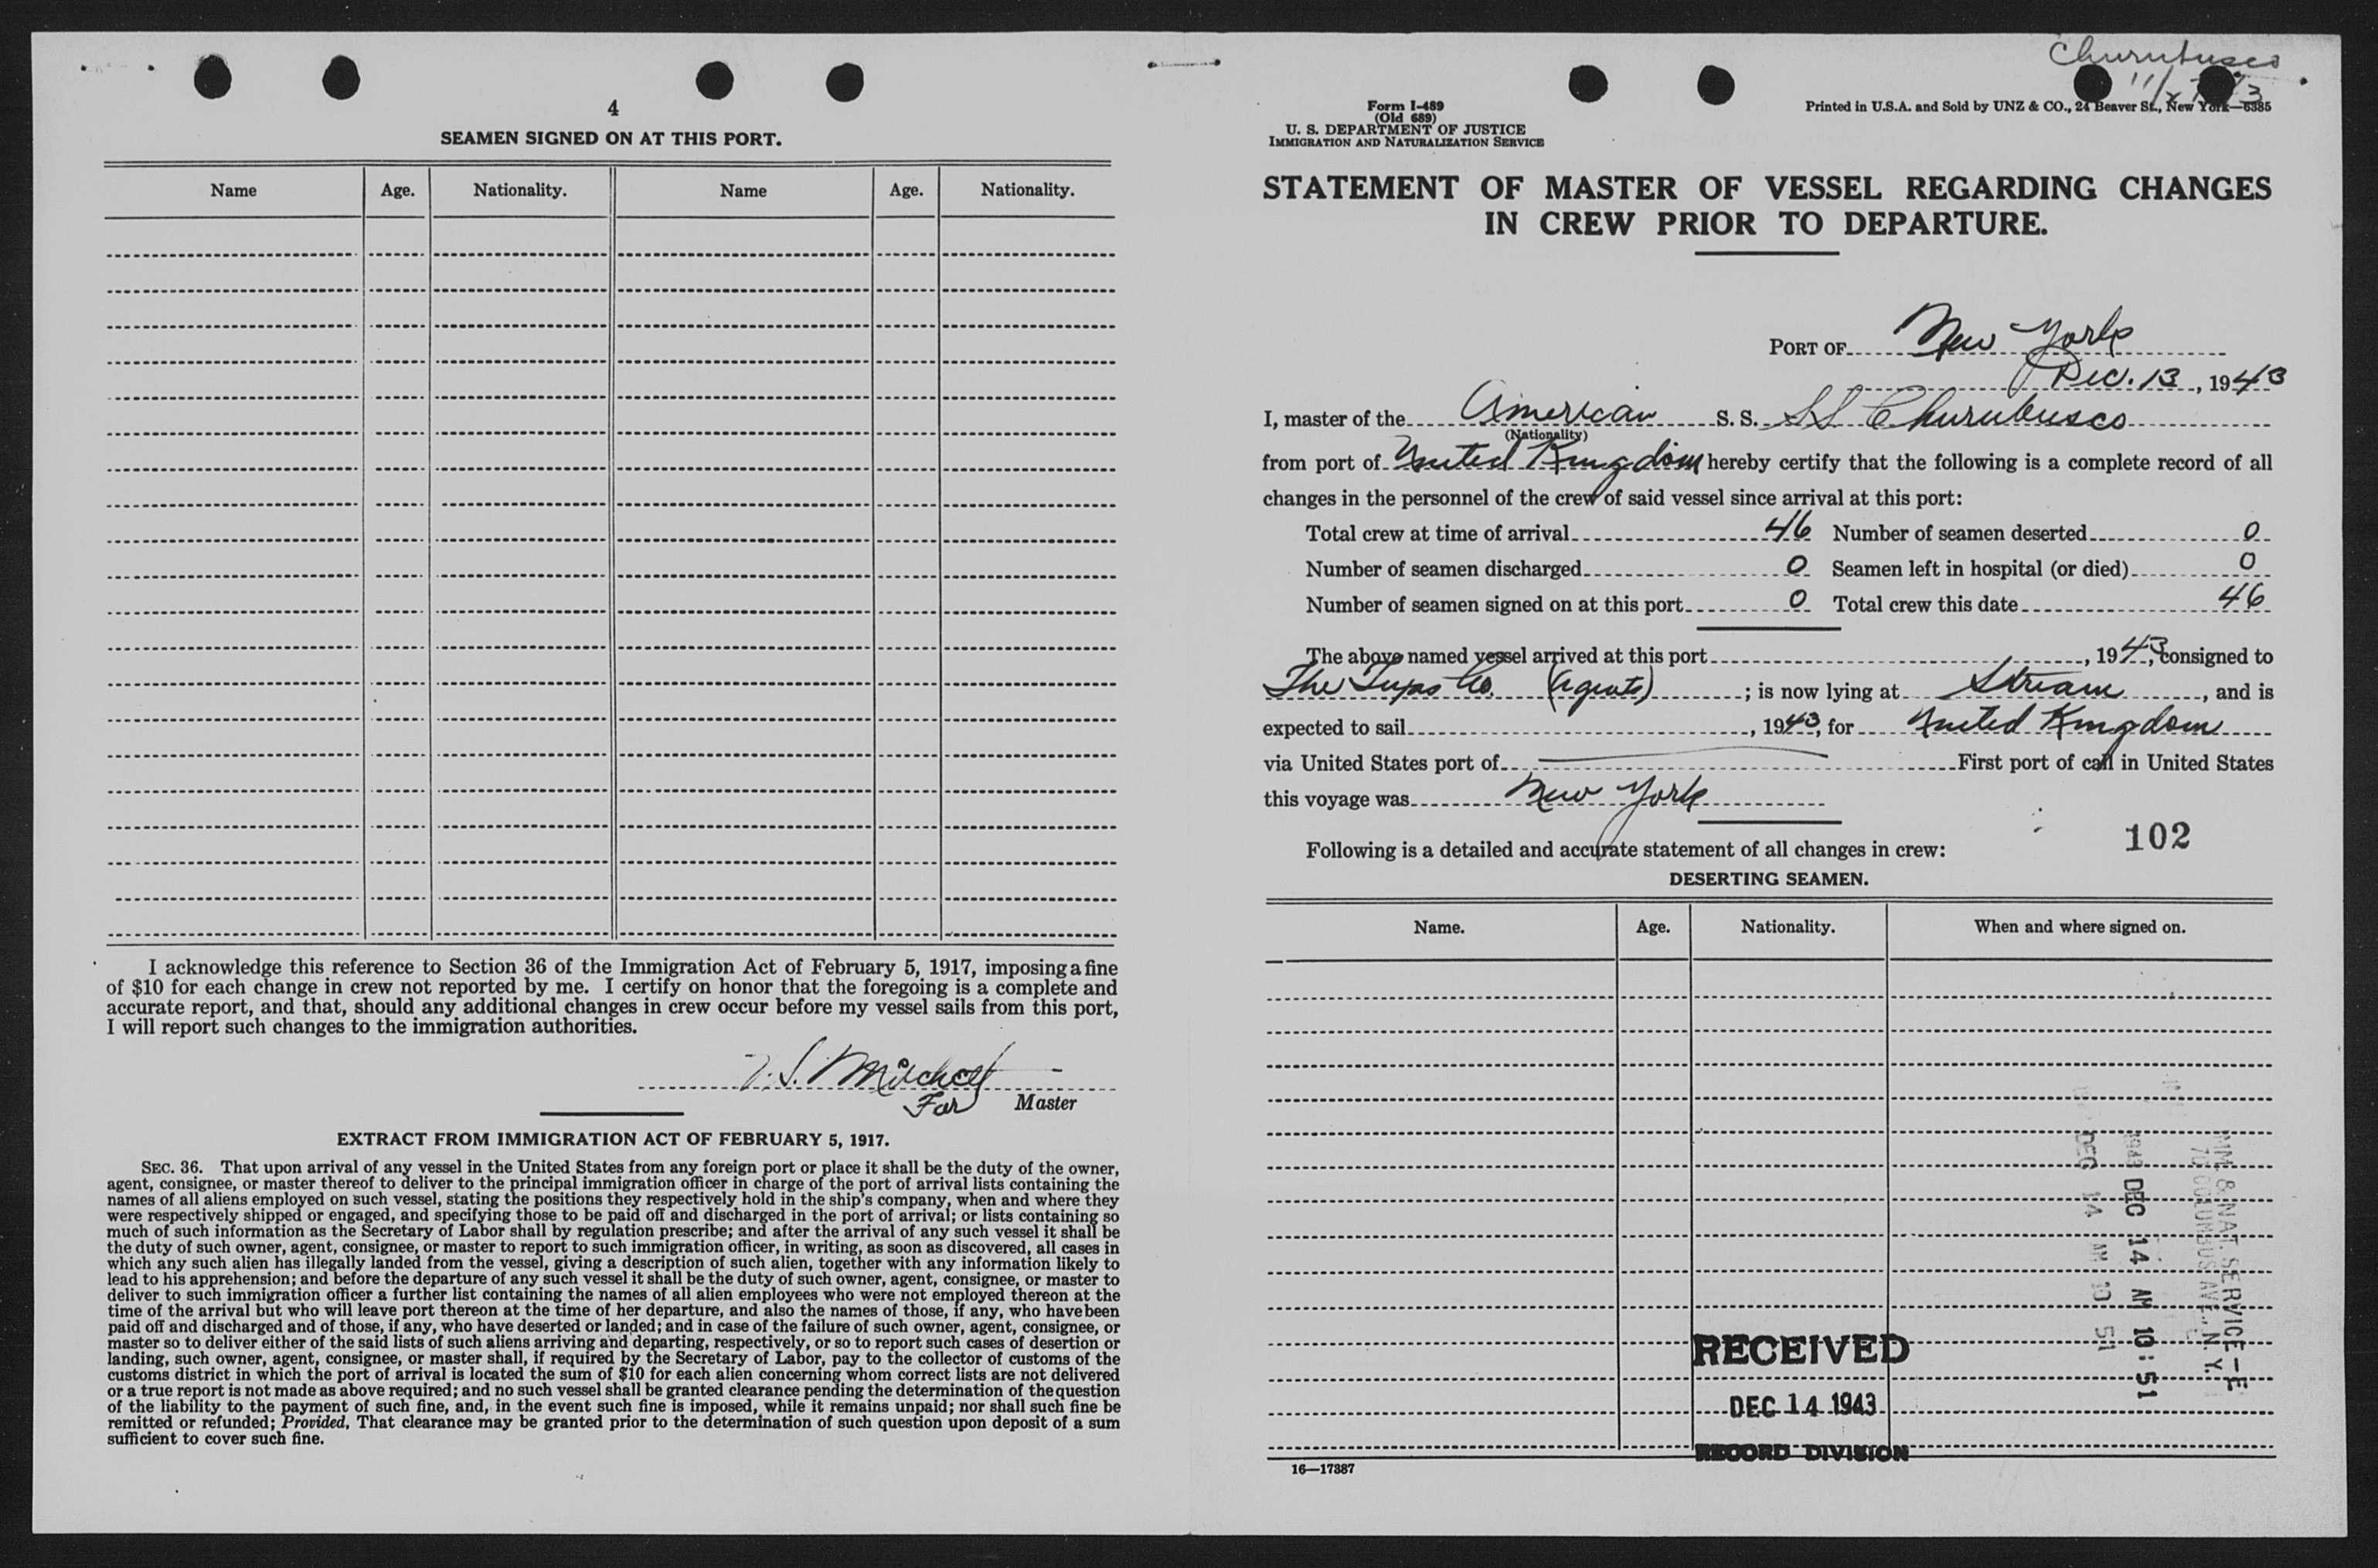 4
SEAMEN SIGNED ON AT THIS PORT.
Name Age. Nationality. Name Age. Nationality.
I acknowledge this reference to Section 36 of the Immigration Act of February 5, 1917, imposing a fine
of $10 for each change in crew not reported by me. I certify on honor that the foregoing is a complete and
accurate report, and that, should any additional changes in crew occur before my vessel sails from this port,
I will report such changes to the immigration authorities.
For Master
EXTRACT FROM IMMIGRATION ACT OF FEBRUARY 5, 1917.
SEC. 36. That upon arrival of any vessel in the United States from any foreign port or place it shall be the duty of the owner,
agent, consignee, or master thereof to deliver to the principal immigration officer in charge of the port of arrival lists containing the
names of all aliens employed on such vessel, stating the positions they respectively hold in the ship's company, when and where they
were respectively shipped or engaged, and specifying those to be paid off and discharged in the port of arrival; or lists containing so
much of such information as the Secretary of Labor shall by regulation prescribe; and after the arrival of any such vessel it shall be
the duty of such owner, agent, consignee, or master to report to such immigration officer, in writing, as soon as discovered, all cases in
which any such alien has illegally landed from the vessel, giving a description of such alien, together with any information likely to
lead to his apprehension; and before the departure of any such vessel it shall be the duty of such owner, agent, consignee, or master to
deliver to such immigration officer a further list containing the names of all alien employees who were not employed thereon at the
time of the arrival but who will leave port thereon at the time of her departure, and also the names of those, if any, who have been
paid off and discharged and of those, if any, who have deserted or landed; and in case of the failure of such owner, agent, consignee, or
master so to deliver either of the said lists of such aliens arriving and departing, respectively, or so to report such cases of desertion or
landing, such owner, agent, consignee, or master shall, if required by the Secretary of Labor, pay to the collector of customs of the
customs district in which the port of arrival is located the sum of $10 for each alien concerning whom correct lists are not delivered
or a true report is not made as above required; and no such vessel shall be granted clearance pending the determination of the question
of the liability to the payment of such fine, and, in the event such fine is imposed, while it remains unpaid; nor shall such fine be
remitted or refunded; Provided, That clearance may be granted prior to the determination of such question upon deposit of a sum
sufficient to cover such fine.
Churubusco
Form I-489
(Old 689)
U. S. DEPARTMENT OF JUSTICE
IMMIGRATION AND NATURALIZATION SERVICE
Printed in U.S.A. and Sold by UNZ & CO., 24 Beaver St., New York—6385
STATEMENT OF MASTER OF VESSEL REGARDING CHANGES
IN CREW PRIOR TO DEPARTURE.
PORT OF New York
Dec. 13, 1943
I, master of the American S. S. SS Churubusco
(Nationality)
from port of United Kingdom hereby certify that the following is a complete record of all
changes in the personnel of the crew of said vessel since arrival at this port:
Total crew at time of arrival 46 Number of seamen deserted 0
Number of seamen discharged 0 Seamen left in hospital (or died) 0
Number of seamen signed on at this port 0 Total crew this date 46
The above named vessel arrived at this port , 1943, consigned to
The Co. (Agents) ; is now lying at Stream , and is
expected to sail , 1943, for United Kingdom
via United States port of — First port of call in United States
this voyage was New York
102
Following is a detailed and accurate statement of all changes in crew:
DESERTING SEAMEN.
Name. Age. Nationality. When and where signed on.
IMM. & NAT. SERVICE-E
70 COLUMBUS AVE., N. Y.
1943 DEC 14 AM 10:51
DEC 14 AM 10 51
RECEIVED
DEC 14 1943
RECORD DIVISION
16—17387